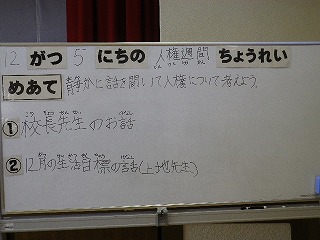 12 がつ 5 にちの 人権週間 ちょうれい
めあて 静かに話を聞いて人権について考えよう。
① 校長先生のお話
② 12月の生活目標の話(上地先生)